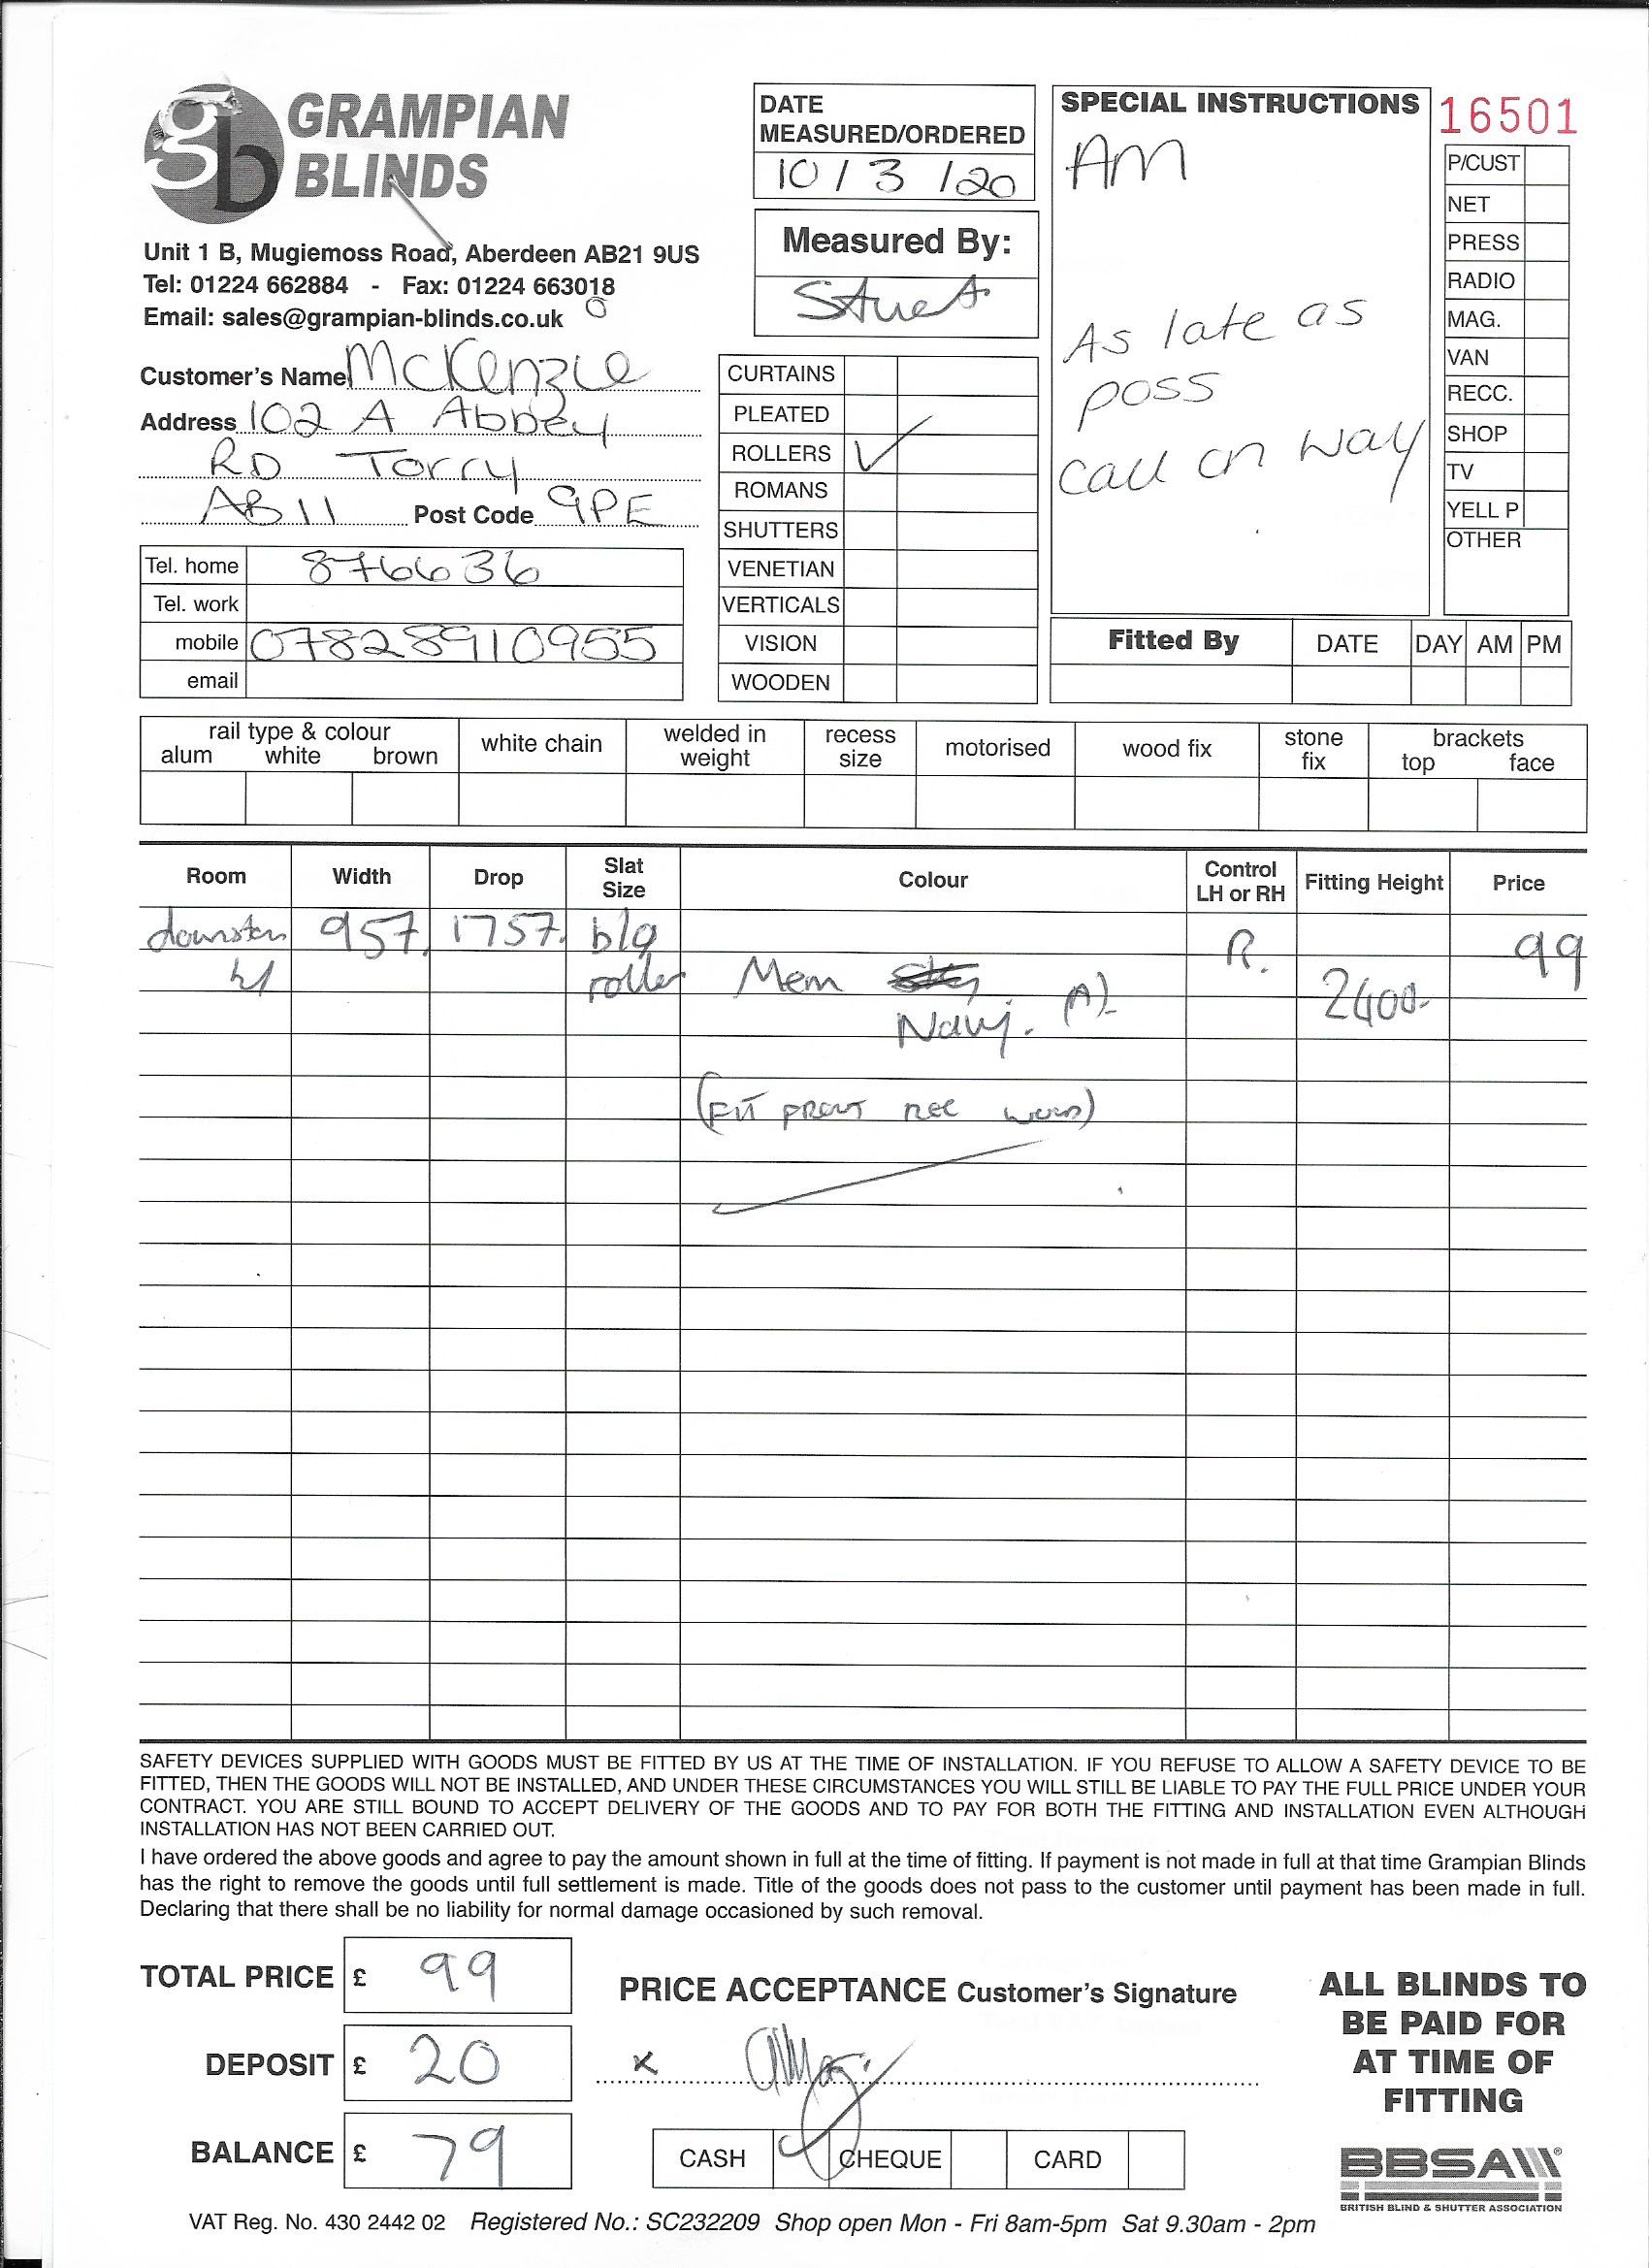 gb GRAMPIAN
BLINDS
Unit 1 B, Mugiemoss Road, Aberdeen AB21 9US
Tel: 01224 662884 - Fax: 01224 663018
Email: sales@grampian-blinds.co.uk
Customer's Name McKenzie
Address 102 A Abbey
RD Torry
AB11 Post Code 9PE
Tel. home 876636
Tel. work
mobile 07828910955
email
DATE
MEASURED/ORDERED
10 / 3 / 20
Measured By:
CURTAINS
PLEATED
ROLLERS ✓
ROMANS
SHUTTERS
VENETIAN
VERTICALS
VISION
WOODEN
SPECIAL INSTRUCTIONS
AM
As late as
poss
call on way
16501
P/CUST
NET
PRESS
RADIO
MAG.
VAN
RECC.
SHOP
TV
YELL P
OTHER
Fitted By DATE DAY AM PM
rail type & colour
alum white brown
white chain
welded in
weight
recess
size
motorised
wood fix
stone
fix
brackets
top face
Room Width Drop Slat Size Colour Control LH or RH Fitting Height Price
957. 1757. R. 99
roller Mem 2400.
Navy. (A)
SAFETY DEVICES SUPPLIED WITH GOODS MUST BE FITTED BY US AT THE TIME OF INSTALLATION. IF YOU REFUSE TO ALLOW A SAFETY DEVICE TO BE
FITTED, THEN THE GOODS WILL NOT BE INSTALLED, AND UNDER THESE CIRCUMSTANCES YOU WILL STILL BE LIABLE TO PAY THE FULL PRICE UNDER YOUR
CONTRACT. YOU ARE STILL BOUND TO ACCEPT DELIVERY OF THE GOODS AND TO PAY FOR BOTH THE FITTING AND INSTALLATION EVEN ALTHOUGH
INSTALLATION HAS NOT BEEN CARRIED OUT.
I have ordered the above goods and agree to pay the amount shown in full at the time of fitting. If payment is not made in full at that time Grampian Blinds
has the right to remove the goods until full settlement is made. Title of the goods does not pass to the customer until payment has been made in full.
Declaring that there shall be no liability for normal damage occasioned by such removal.
TOTAL PRICE £ 99
DEPOSIT £ 20
BALANCE £ 79
PRICE ACCEPTANCE Customer's Signature
x
CASH ✓ CHEQUE CARD
ALL BLINDS TO
BE PAID FOR
AT TIME OF
FITTING
BBSA
BRITISH BLIND & SHUTTER ASSOCIATION
VAT Reg. No. 430 2442 02 Registered No.: SC232209 Shop open Mon - Fri 8am-5pm Sat 9.30am - 2pm